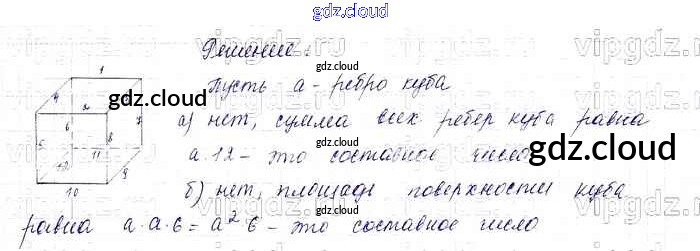 gdz.cloud
Решение:
gdz.cloud
Пусть а - ребро куба
gdz.cloud
1
4
2
6
8
7
5
12
11
9
10
а) нет, сумма всех ребер куба равна
а·12 - это составное число
gdz.cloud
б) нет, площадь поверхности куба
gdz.cloud
равна а·а·6 = а²6 - это составное число
gdz.cloud
vipgdz.ru